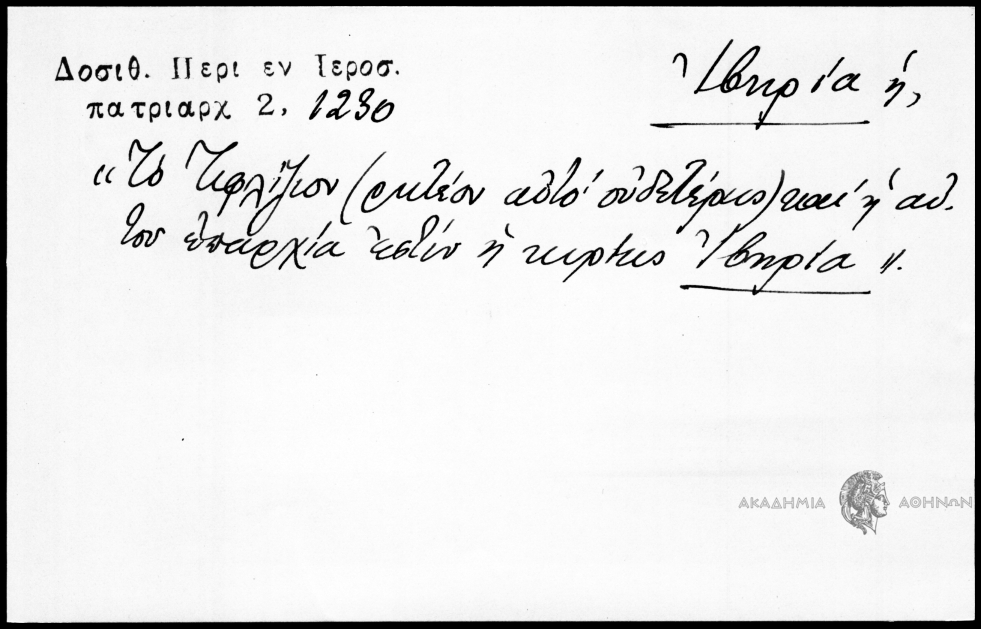 Δοσιθ. Περι εν Ιεροσ.
πατριαρχ 2, 1230
Ἰβηρία ἡ,
«Τὸ Τεφλίζιον (ῥητέον αὐτὸ οὐδετέρως) καὶ ἡ αὐ-
τοῦ ἐπαρχία ἐστὶν ἡ κυρίως Ἰβηρία».
ΑΚΑΔΗΜΙΑ ΑΘΗΝΩΝ